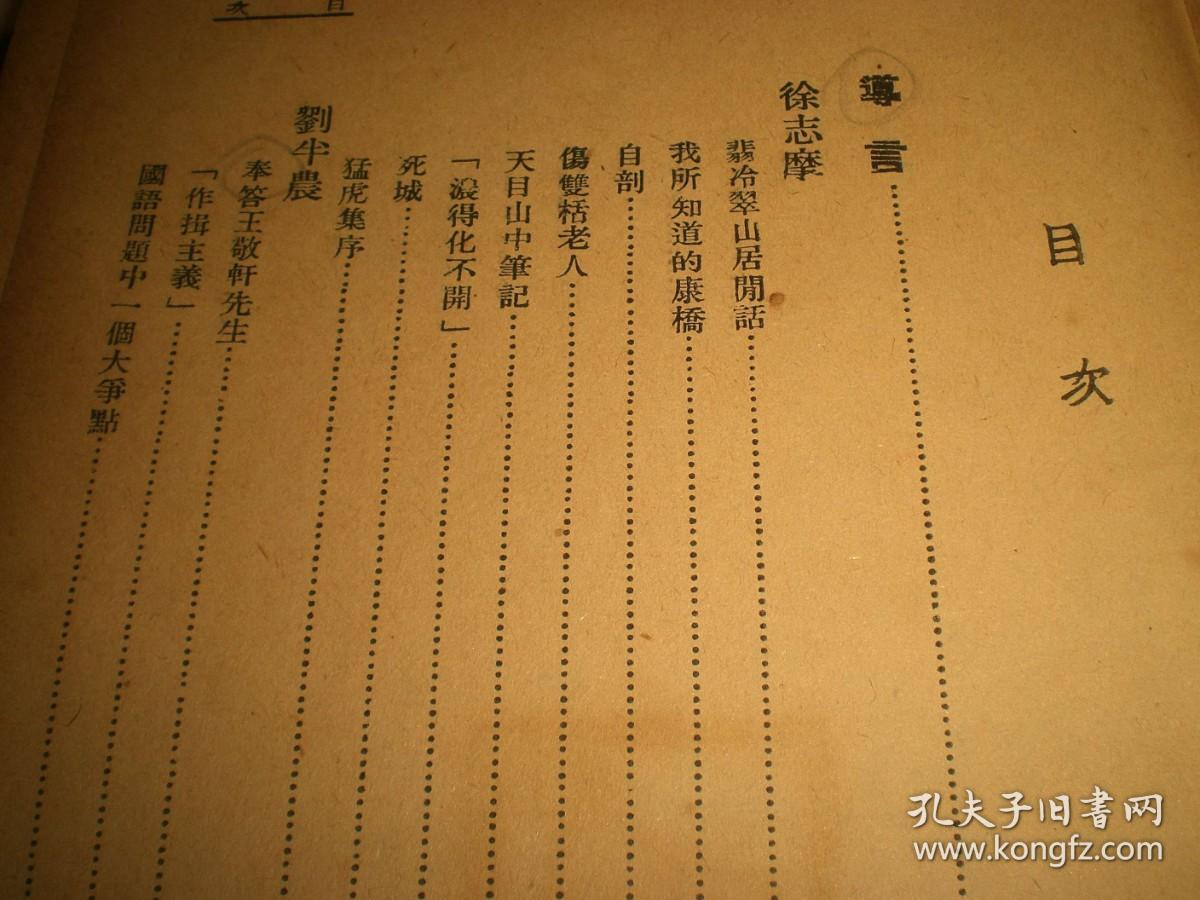 目次
導言
徐志摩
翡冷翠山居閒話
我所知道的康橋
自剖
傷雙栝老人
天目山中筆記
「濃得化不開」
死城
猛虎集序
劉半農
奉答王敬軒先生
「作揖主義」
國語問題中一個大爭點
目次
孔夫子旧书网
www.kongfz.com